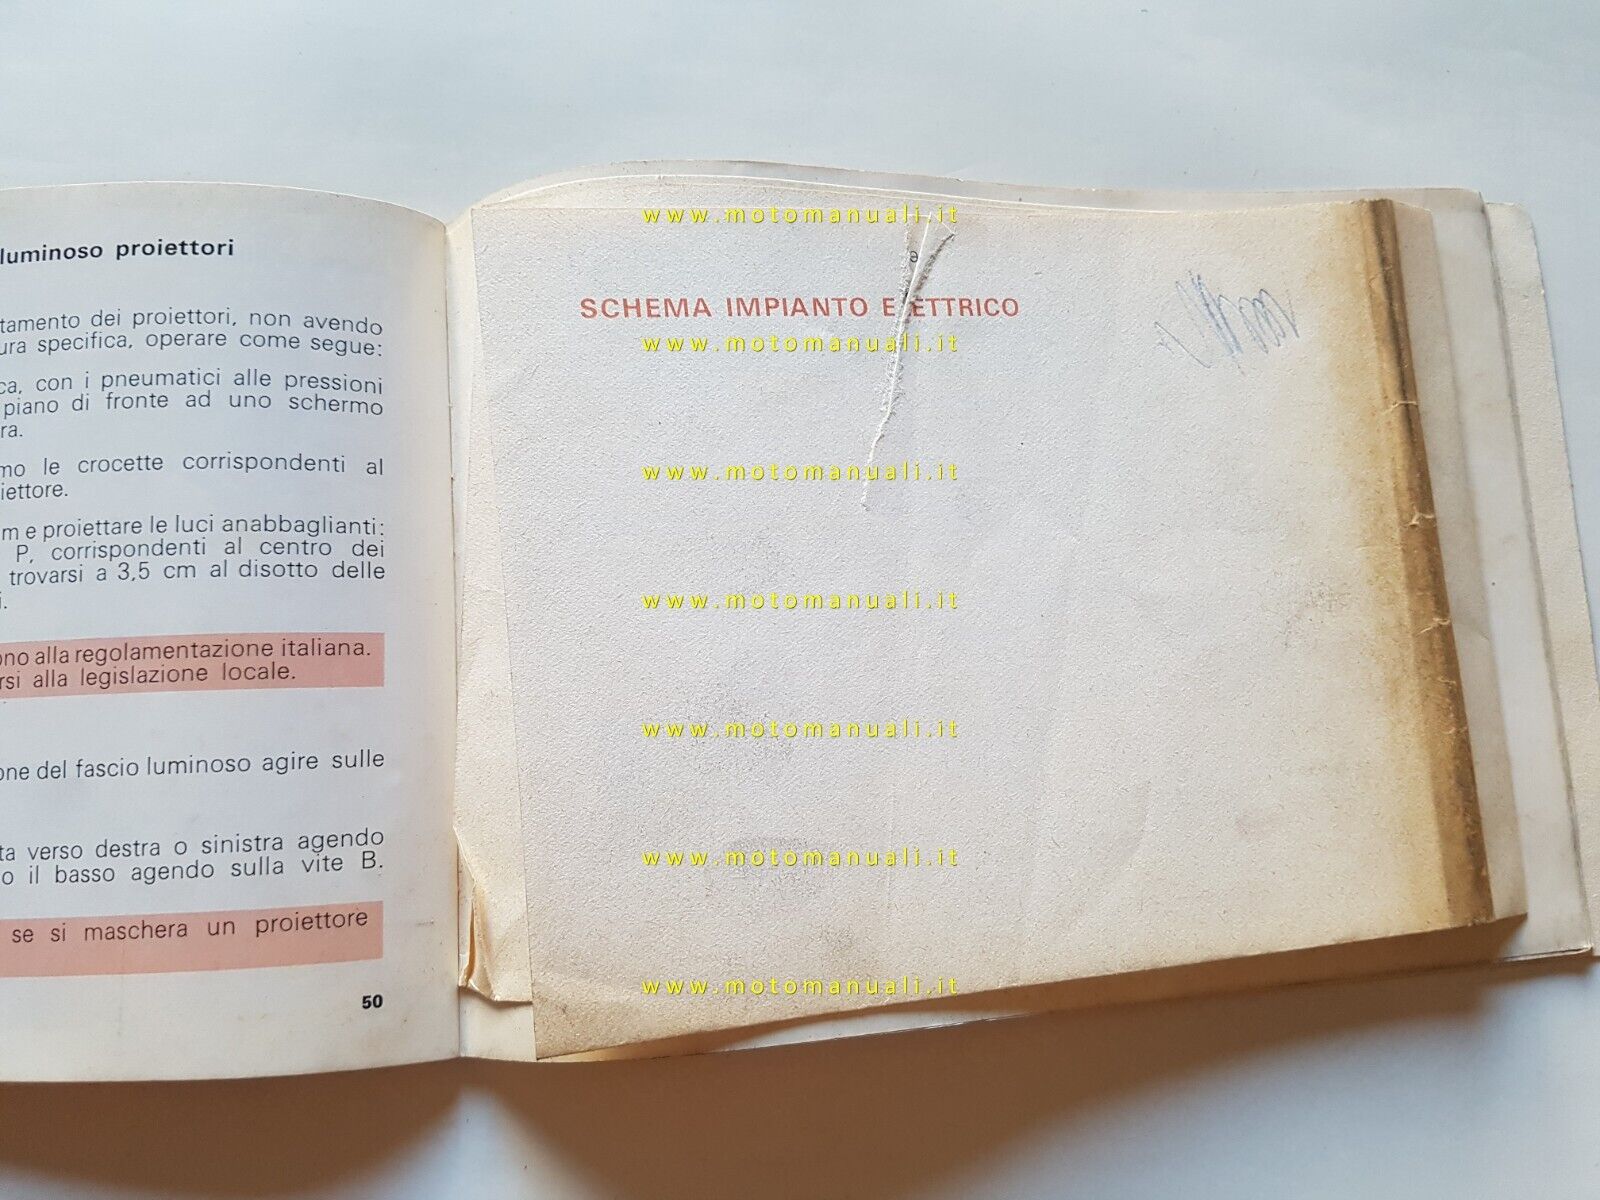 luminoso proiettori
tamento dei proiettori, non avendo
ura specifica, operare come segue:
ca, con i pneumatici alle pressioni
piano di fronte ad uno schermo
ra.
mo le crocette corrispondenti al
iettore.
m e proiettare le luci anabbaglianti:
P, corrispondenti al centro dei
trovarsi a 3,5 cm al disotto delle
i.
ono alla regolamentazione italiana.
rsi alla legislazione locale.
one del fascio luminoso agire sulle
ta verso destra o sinistra agendo
o il basso agendo sulla vite B.
se si maschera un proiettore
50
www.motomanuali.it
e
SCHEMA IMPIANTO ELETTRICO
www.motomanuali.it
www.motomanuali.it
www.motomanuali.it
www.motomanuali.it
www.motomanuali.it
www.motomanuali.it